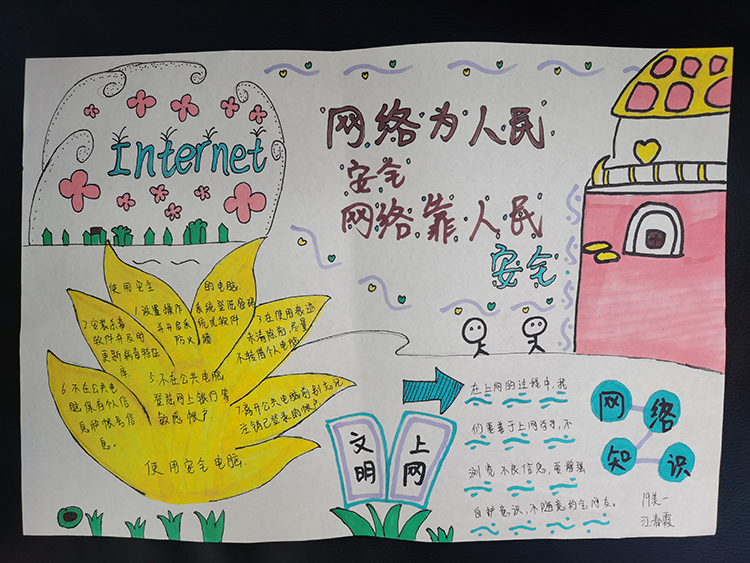 Internet
网络为人民
安全
网络靠人民
安全
使用安全的电脑
1.设置操作系统登陆密码
并开启系统或软件
防火墙
2.安装杀毒
软件并及时
更新病毒特征
库
3.在使用痕迹
未清除前,尽量
不转借个人电脑
6.不在公共电
脑保存个人信
息和帐号信
息。
5.不在公共电脑
登陆网上银行等
敏感帐户
7.离开公共电脑前别忘记
注销已登录的帐户
使用安全电脑.
文明
上网
在上网的过程中,我
们要善于上网学习,不
浏览不良信息,要增强
自护意识,不随意约会网友。
网络
知识
19美一
江春霞